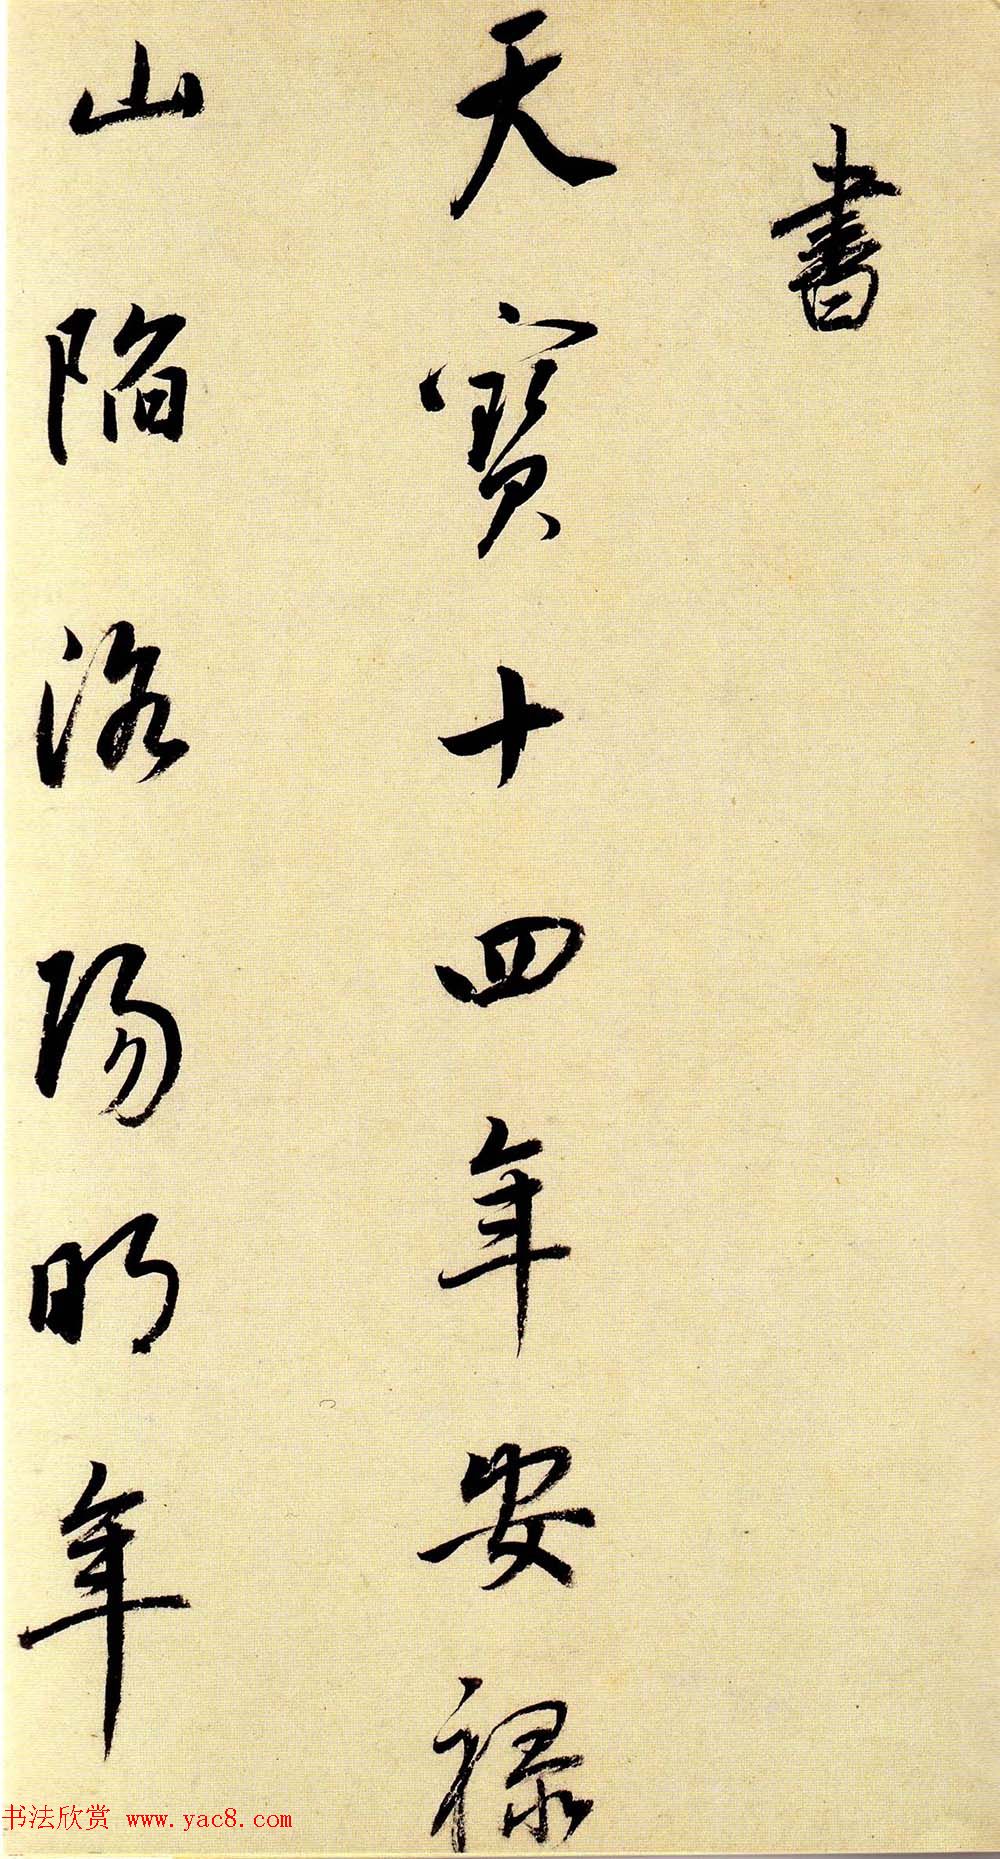 書
天寶十四年安祿
山陷洛陽明年
书法欣赏 www.yac8.com